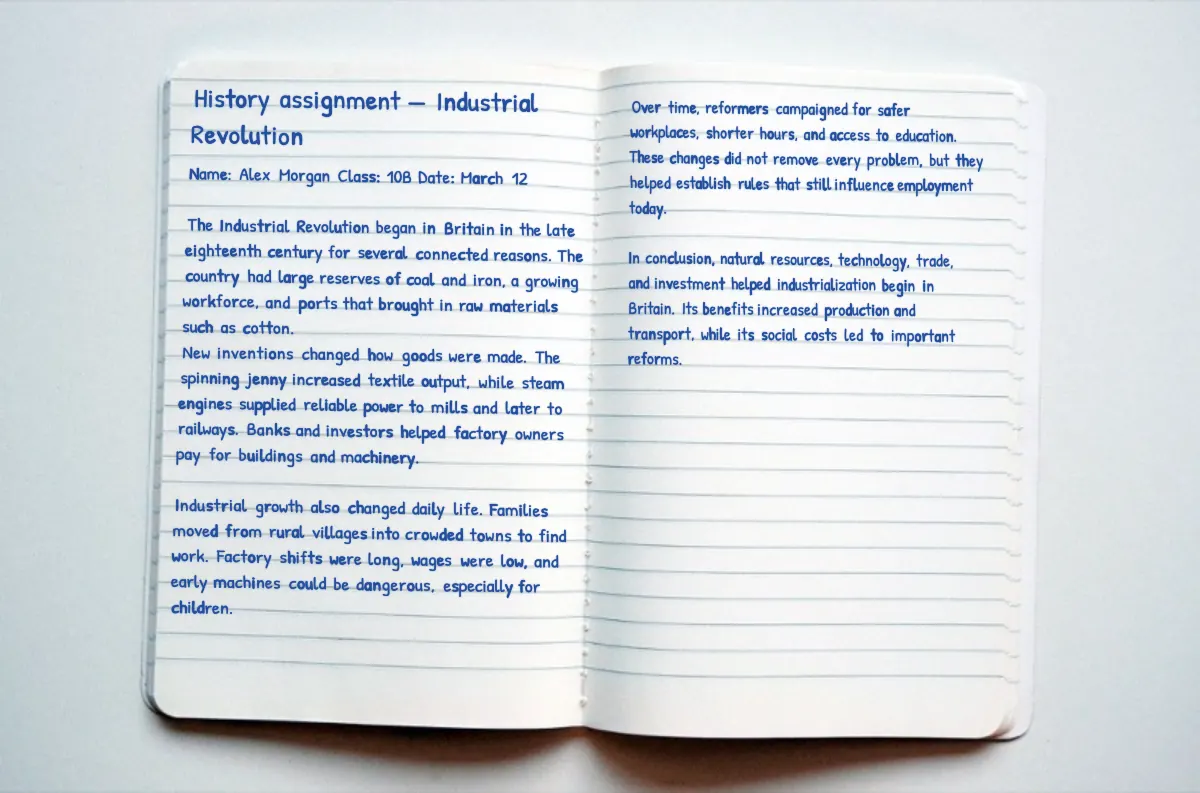 History assignment — Industrial
Revolution
Name: Alex Morgan Class: 10B Date: March 12
The Industrial Revolution began in Britain in the late
eighteenth century for several connected reasons. The
country had large reserves of coal and iron, a growing
workforce, and ports that brought in raw materials
such as cotton.
New inventions changed how goods were made. The
spinning jenny increased textile output, while steam
engines supplied reliable power to mills and later to
railways. Banks and investors helped factory owners
pay for buildings and machinery.
Industrial growth also changed daily life. Families
moved from rural villages into crowded towns to find
work. Factory shifts were long, wages were low, and
early machines could be dangerous, especially for
children.
Over time, reformers campaigned for safer
workplaces, shorter hours, and access to education.
These changes did not remove every problem, but they
helped establish rules that still influence employment
today.
In conclusion, natural resources, technology, trade,
and investment helped industrialization begin in
Britain. Its benefits increased production and
transport, while its social costs led to important
reforms.